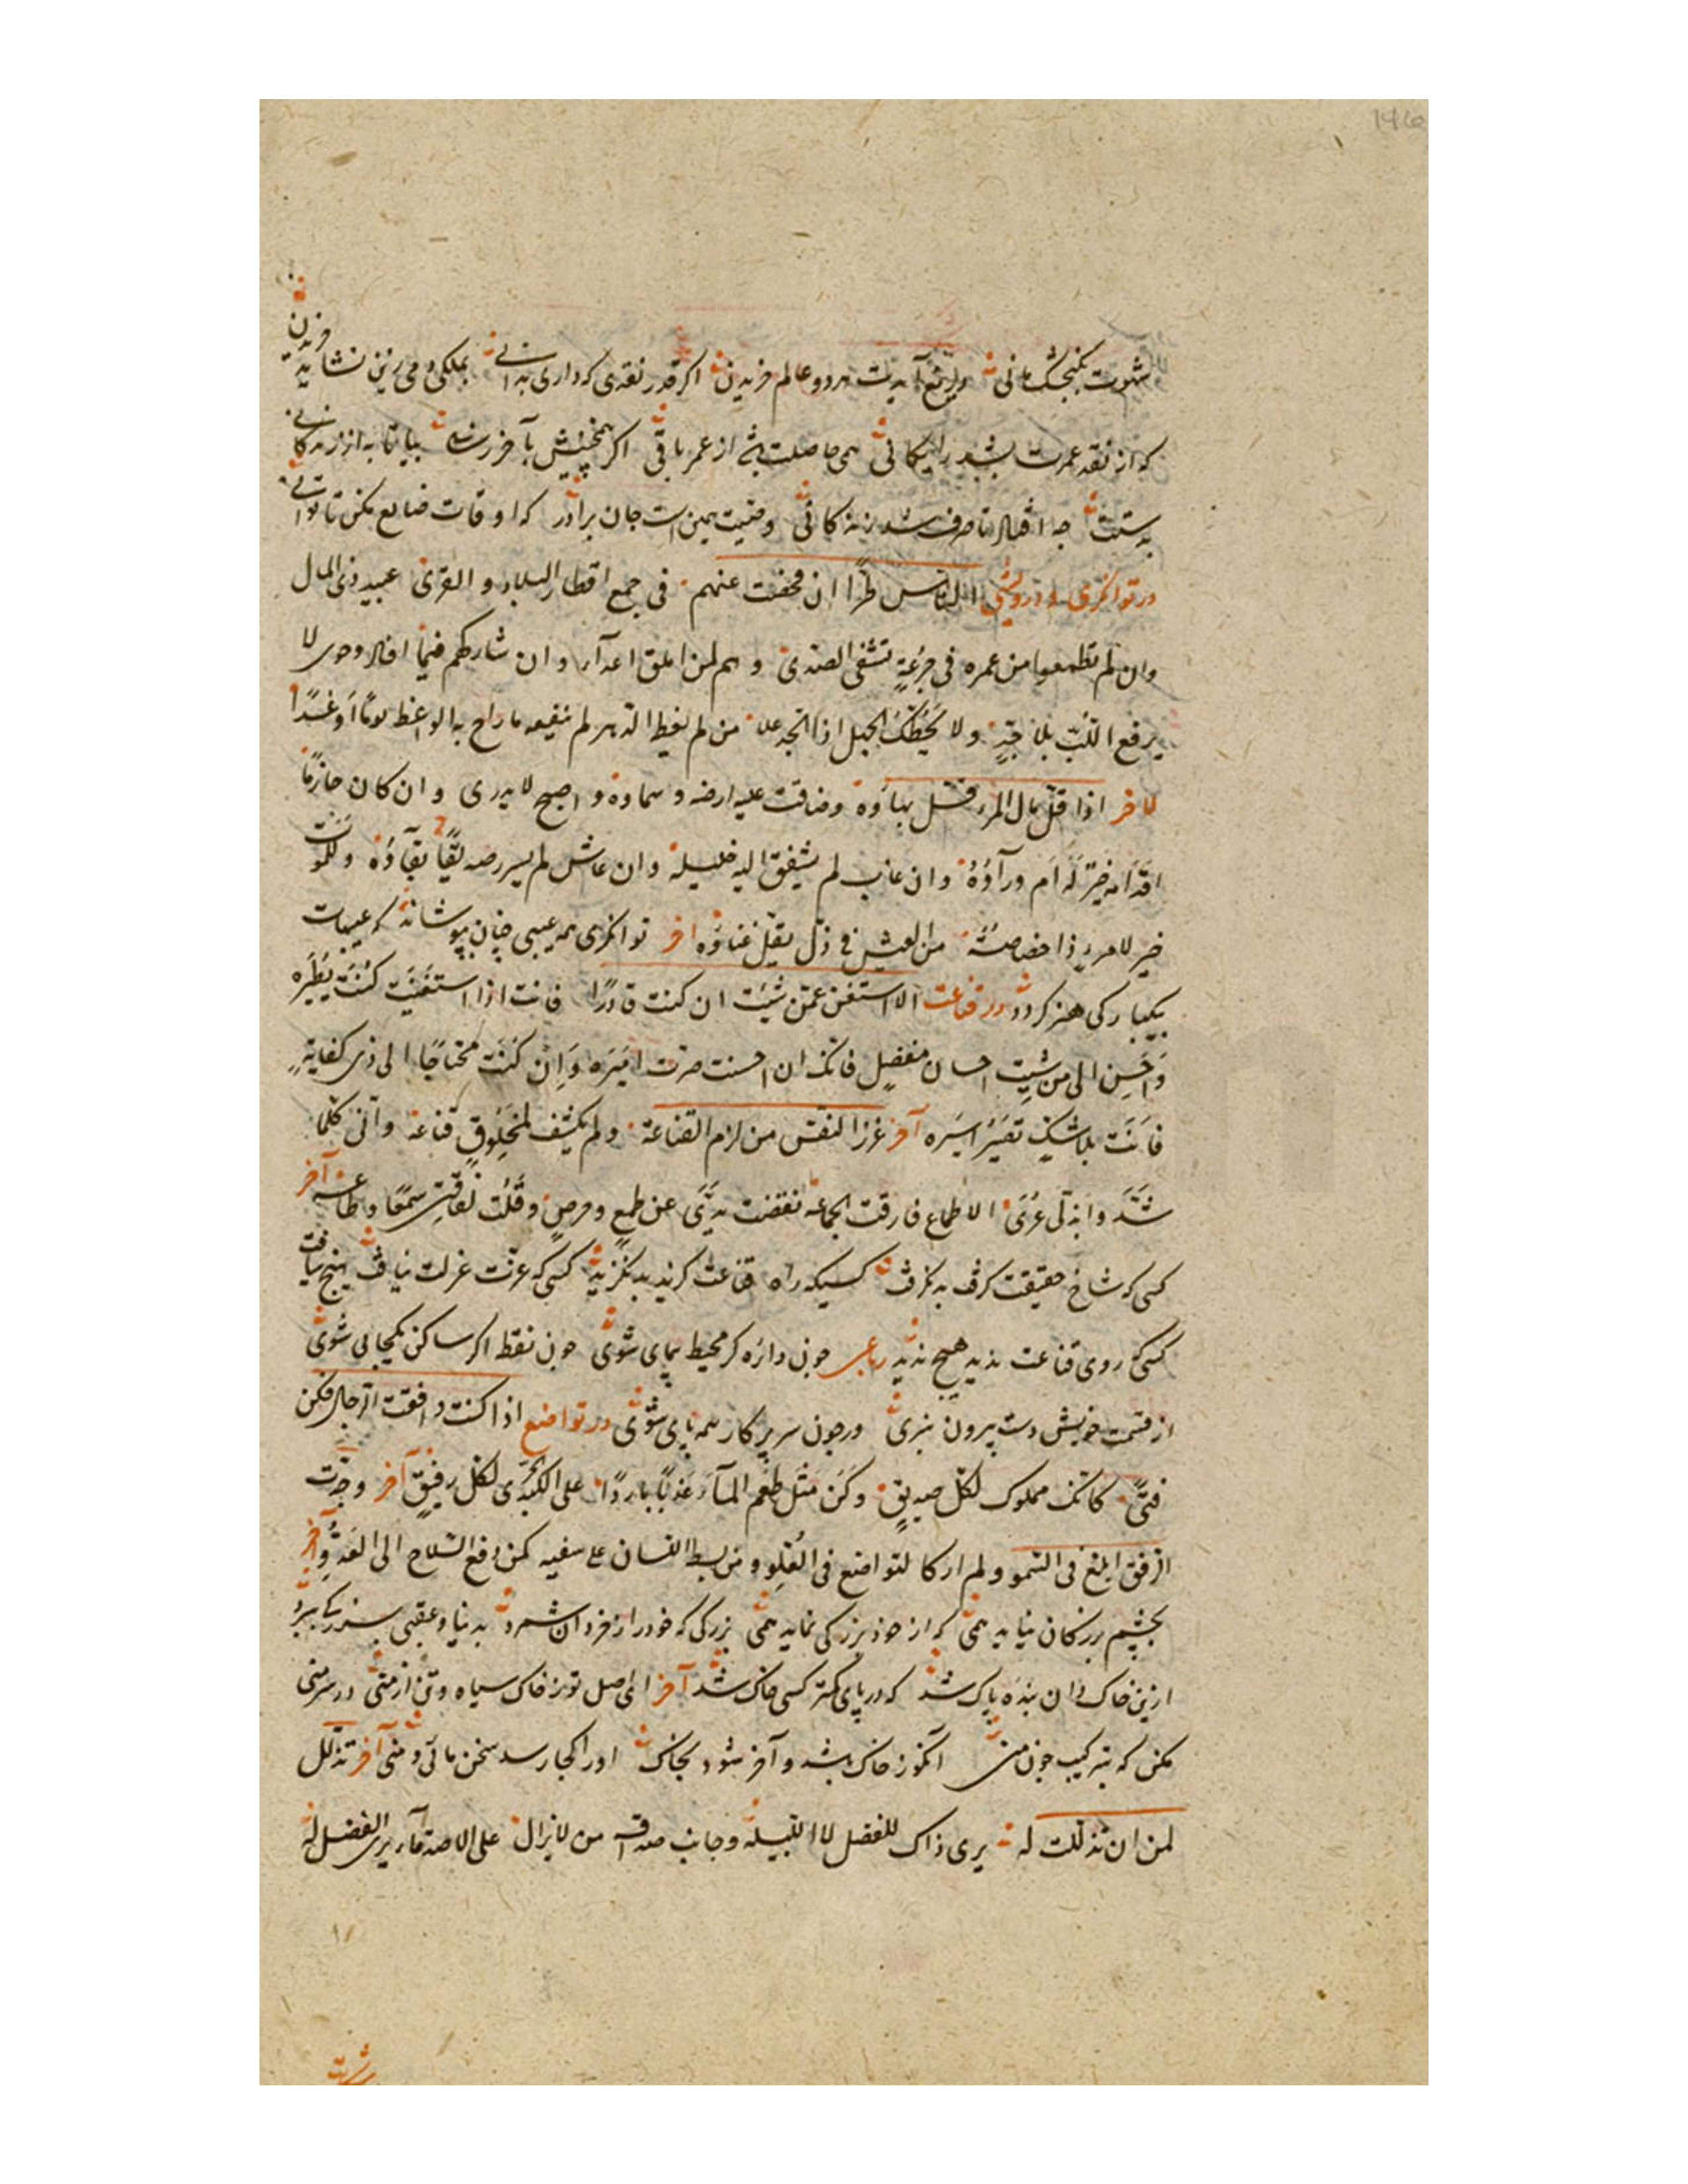 شهوت بکنجشک مانی دریغ آیدت هر دو عالم خریدن اکر قدر نقدی که داری بدانی بملکی دمی زین نشاید خریدن
که از نقد عمرت بشد رایکانی همی حاصلت باشد از عمر باقی اکر همچنینش بآخر رسانی بیا تا به از زندکانی
بدستت چه افتاد تا صرف شد زندکانی وصیت همین است جان برادر که اوقات ضایع مکن تا توانی
در توانکری و درویشی الناس طرا ان محضت عنهم فی جمع اقطار البلاد و القری عبید ذی المال
وان لم تطمعوا من عمره فی جرعة تشفی الصدی و هم لمن املق اعداء و ان شارکهم فیما افاد وحوی لا
یرفع اللب بلا جد ولا یحطک الجهل اذا الجد علا من لم یعظ الدهر لم ینفعه ما راح به الواعظ یوما او غدا
لاخر اذا قل مال المرء قل بهاؤه وضاقت علیه ارضه و سماوه و اصبح لا یدری و ان کان حازما
اقدامه خیر له ام ورآؤه وان غاب لم یشفق الیه خلیله وان عاش لم یسرر صدیقا بقآؤه وللموت
خیر لامرء ذا خصاصة من العیش فی ذل یقل غناؤه اخر توانکری همه عیبی چنان بپوشاند که عیبهات
بیکبارکی هنر کردد در قناعت الا استغن عمن شئت ان کنت قادرا فانت اذا استغنیت کنت نظیره
وَاحسن الی من شئت احسان مفضل فانک ان احسنت صرت امیره وَان کنت محتاجا الی ذی کفایة
فانت بلا شک تصیر اسیره آخر عزز النفس من لزم القناعة ولم یکشف لمخلوق قناعه وآنی کلما
شد وابدلی عری الاطماع فارقت الجماعه نفضت یدی عن طمع وحرص وقلت لفاقتی سمعا وطاعه آخر
کسی که شاخ حقیقت کرفت بد نکرفت کسیکه راه قناعت کزید بد نکزید کسی که عزت عزلت نیافت هیچ نیافت
کسی که روی قناعت ندید هیچ ندید رباعی چون دائره کر محیط پیمای شوی چون نقطه اکر ساکن یکجایی شوی
از قسمت خویش دست بیرون نبری ور چون سر پرکار همه پای شوی در تواضع اذا کنت وافقت الرجال فکن
فتی کانک مملوک لکل صدیق وکن مثل طعم المآء عذبا باردا علی الکبد الحری لکل رفیق آخر وجدت
الرفق ابلغ فی السمو ولم ار کالتواضع فی العلو و من بسط اللسان علی سفیه کمن دفع السلاح الی العدو آخر
بچشم بزرکان نیاید همی که از خود بزرکی نماید همی بزرکی که خود را ز خردان شمرد بدنیا و عقبی بزرکی ببرد
ازین خاک دان بنده پاک شد که در پای کمتر کسی خاک شد آخر ای اصل تو ز خاک سیاه و تن از منی در سر منی
مکن که بترکیب چون منی آنکو ز خاک باشد و آخر شود بخاک او را کجا رسد سخن مائی و منی آخر تذلل
لمن ان تذللت له یری ذاک للفضل لا للبله وجانب صداقة من لا یزال علی الاصدقاء یری الفضل له